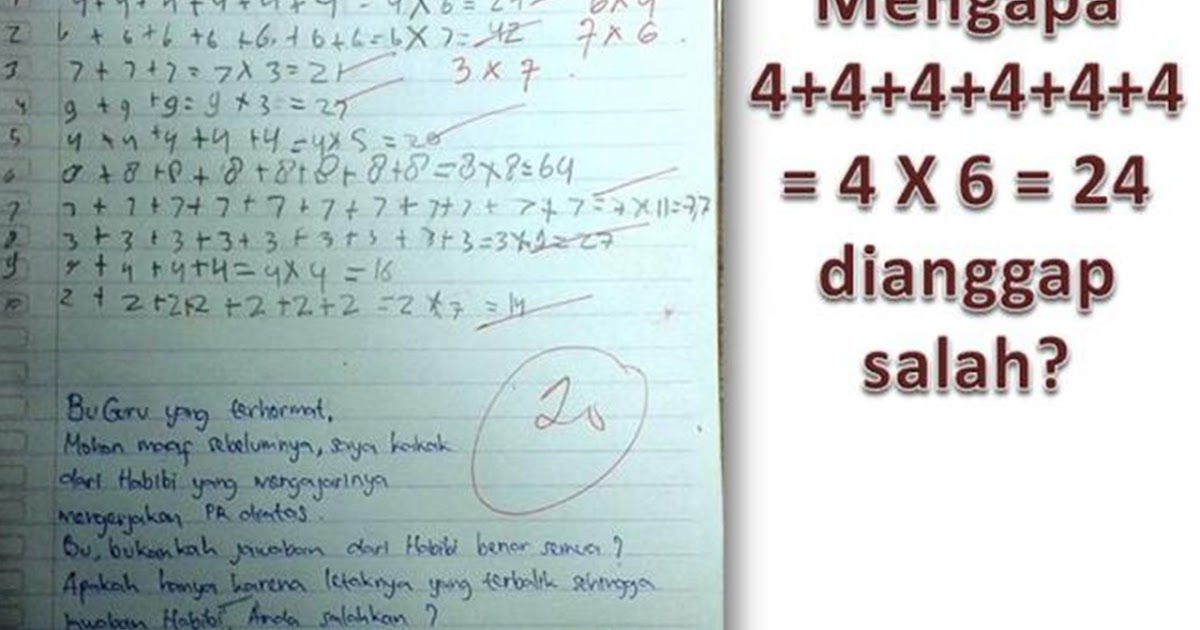 4+4+4+4+4+4 = 4X6=24 6x4
2 6 + 6 +6 +6 +6 +6+6=6X7=42 7x6
3 7 + 7 +7 = 7X3=21 3 x 7
4 9 + 9 +9= 9 x3 = 27
5 4 + 4 +4 +4 +4 =4x5 =20
6 8 + 8 +8 + 8 +8+8+ 8+8=8x8=64
7 7 + 7 + 7+ 7 + 7 + 7 + 7 + 7+7 + 7+7 =7x11=77
8 3 + 3 + 3 +3+ 3 + 3 +3 + 3+3=3x9=27
9 4 + 4 +4+4=4x4 =16
10 2 + 2+2+2 +2 +2+2 =2 x7 =14
20
Bu Guru yang terhormat,
Mohon maaf sebelumnya, saya kakak
dari Habibi yang mengajarinya
mengerjakan PR diatas.
Bu, bukankah jawaban dari Habibi benar semua?
Apakah hanya karena letaknya yang terbalik sehingga
jawaban Habibi Anda salahkan?
Mengapa
4+4+4+4+4+4
= 4 X 6 = 24
dianggap
salah?